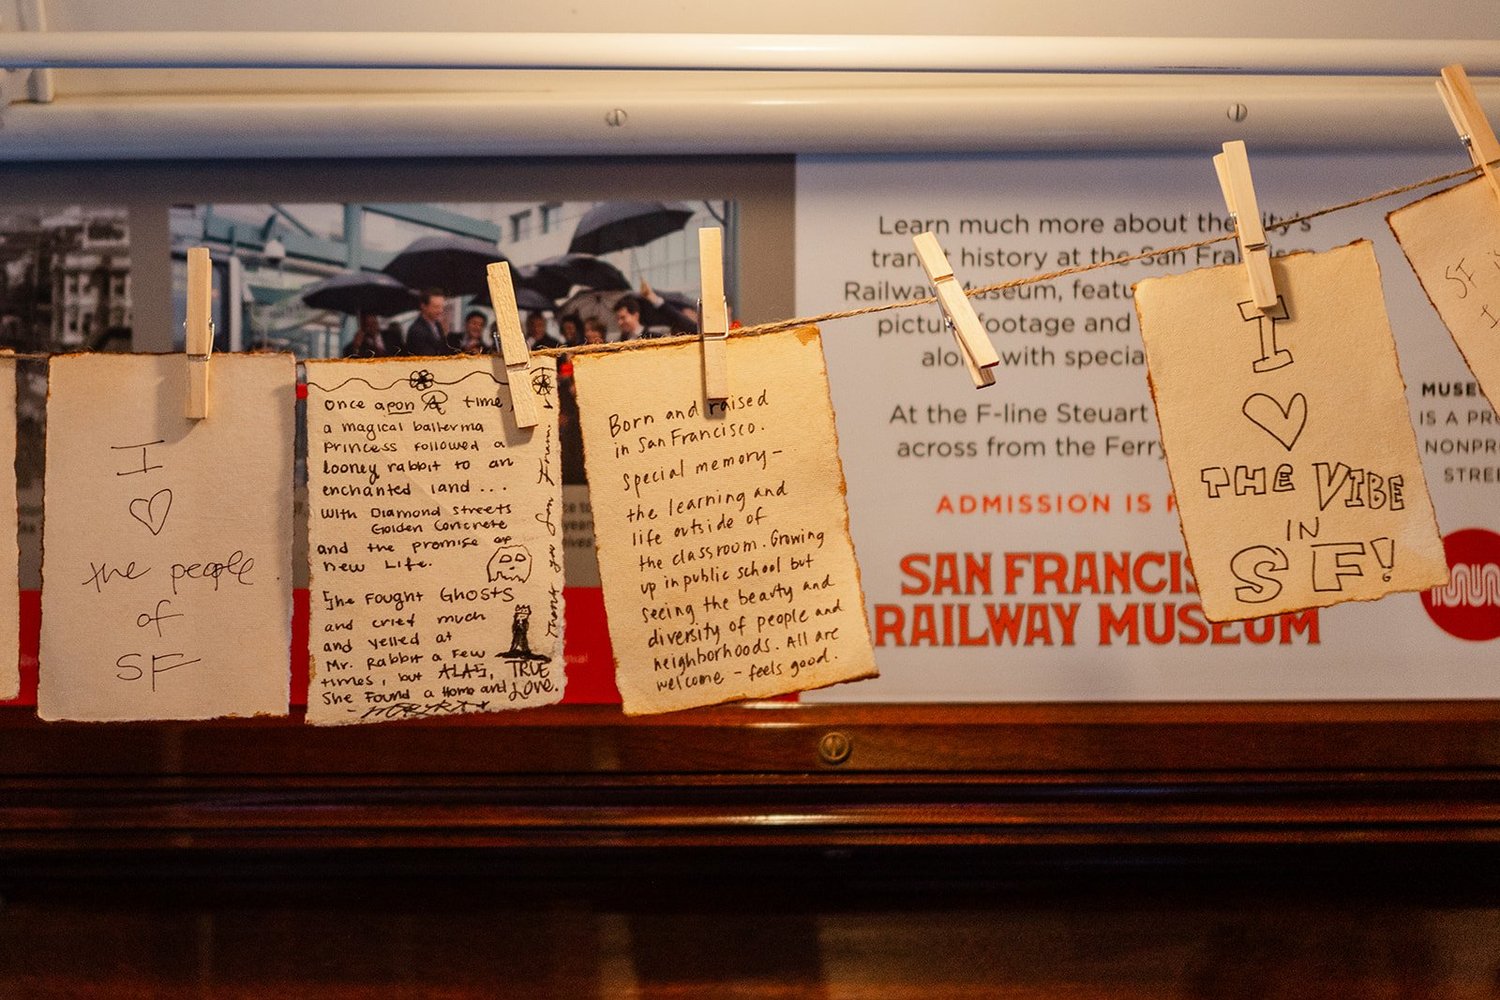 I
♡
the people
of
SF
Once apon A time,
a magical ballerina
Princess followed a
looney rabbit to an
enchanted land...
With Diamond Streets
Golden Concrete
and the promise of
new Life.
She Fought Ghosts
and cried much
and yelled at
Mr. Rabbit a Few
times, but ALAS, TRUE
She Found a Home and Love.
Thank you San Fran.
Born and raised
in San Francisco.
Special memory–
the learning and
life outside of
the classroom. Growing
up in public school but
seeing the beauty and
diversity of people and
neighborhoods. All are
welcome – feels good.
Learn much more about the city's
history at the San
Railway Museum,
footage and
with
At the F-line Steuart
across from the Ferry
ADMISSION IS
SAN
RAILWAY MUSEUM
I
♡
THE VIBE
IN
SF!
SF
I
IS A